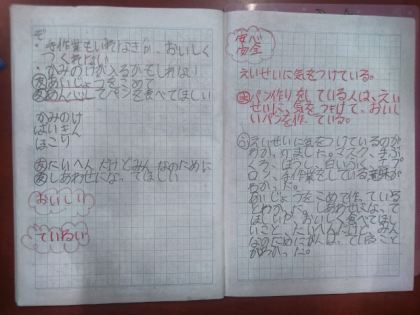 も
・手作業もいれなきゃ、おいしく
つくれない
・かみのけが入るかもしれない
あいじょうをこめて
あん心してパンを食べてほしい
かみのけ
ばいきん
ほこり
たいへんだけどみんなのために
しあわせになってほしい
おいしい
ていねい
安心
安全
えいせいに気をつけている。
パン作りをしている人は、えい
せいに気をつけて、おいし
いパンを作っている。
えいせいに気をつけているのが
わかりました。マスク、
ぼうし、白いふく、
手作業をしている意味が
わかった。
あいじょうをこめて作っている
とわかった。しあわせになって
ほしいや、おいしく食べてほ
しいこと、たいへんだけど、みん
なのためにがんばっていること
がわかった。